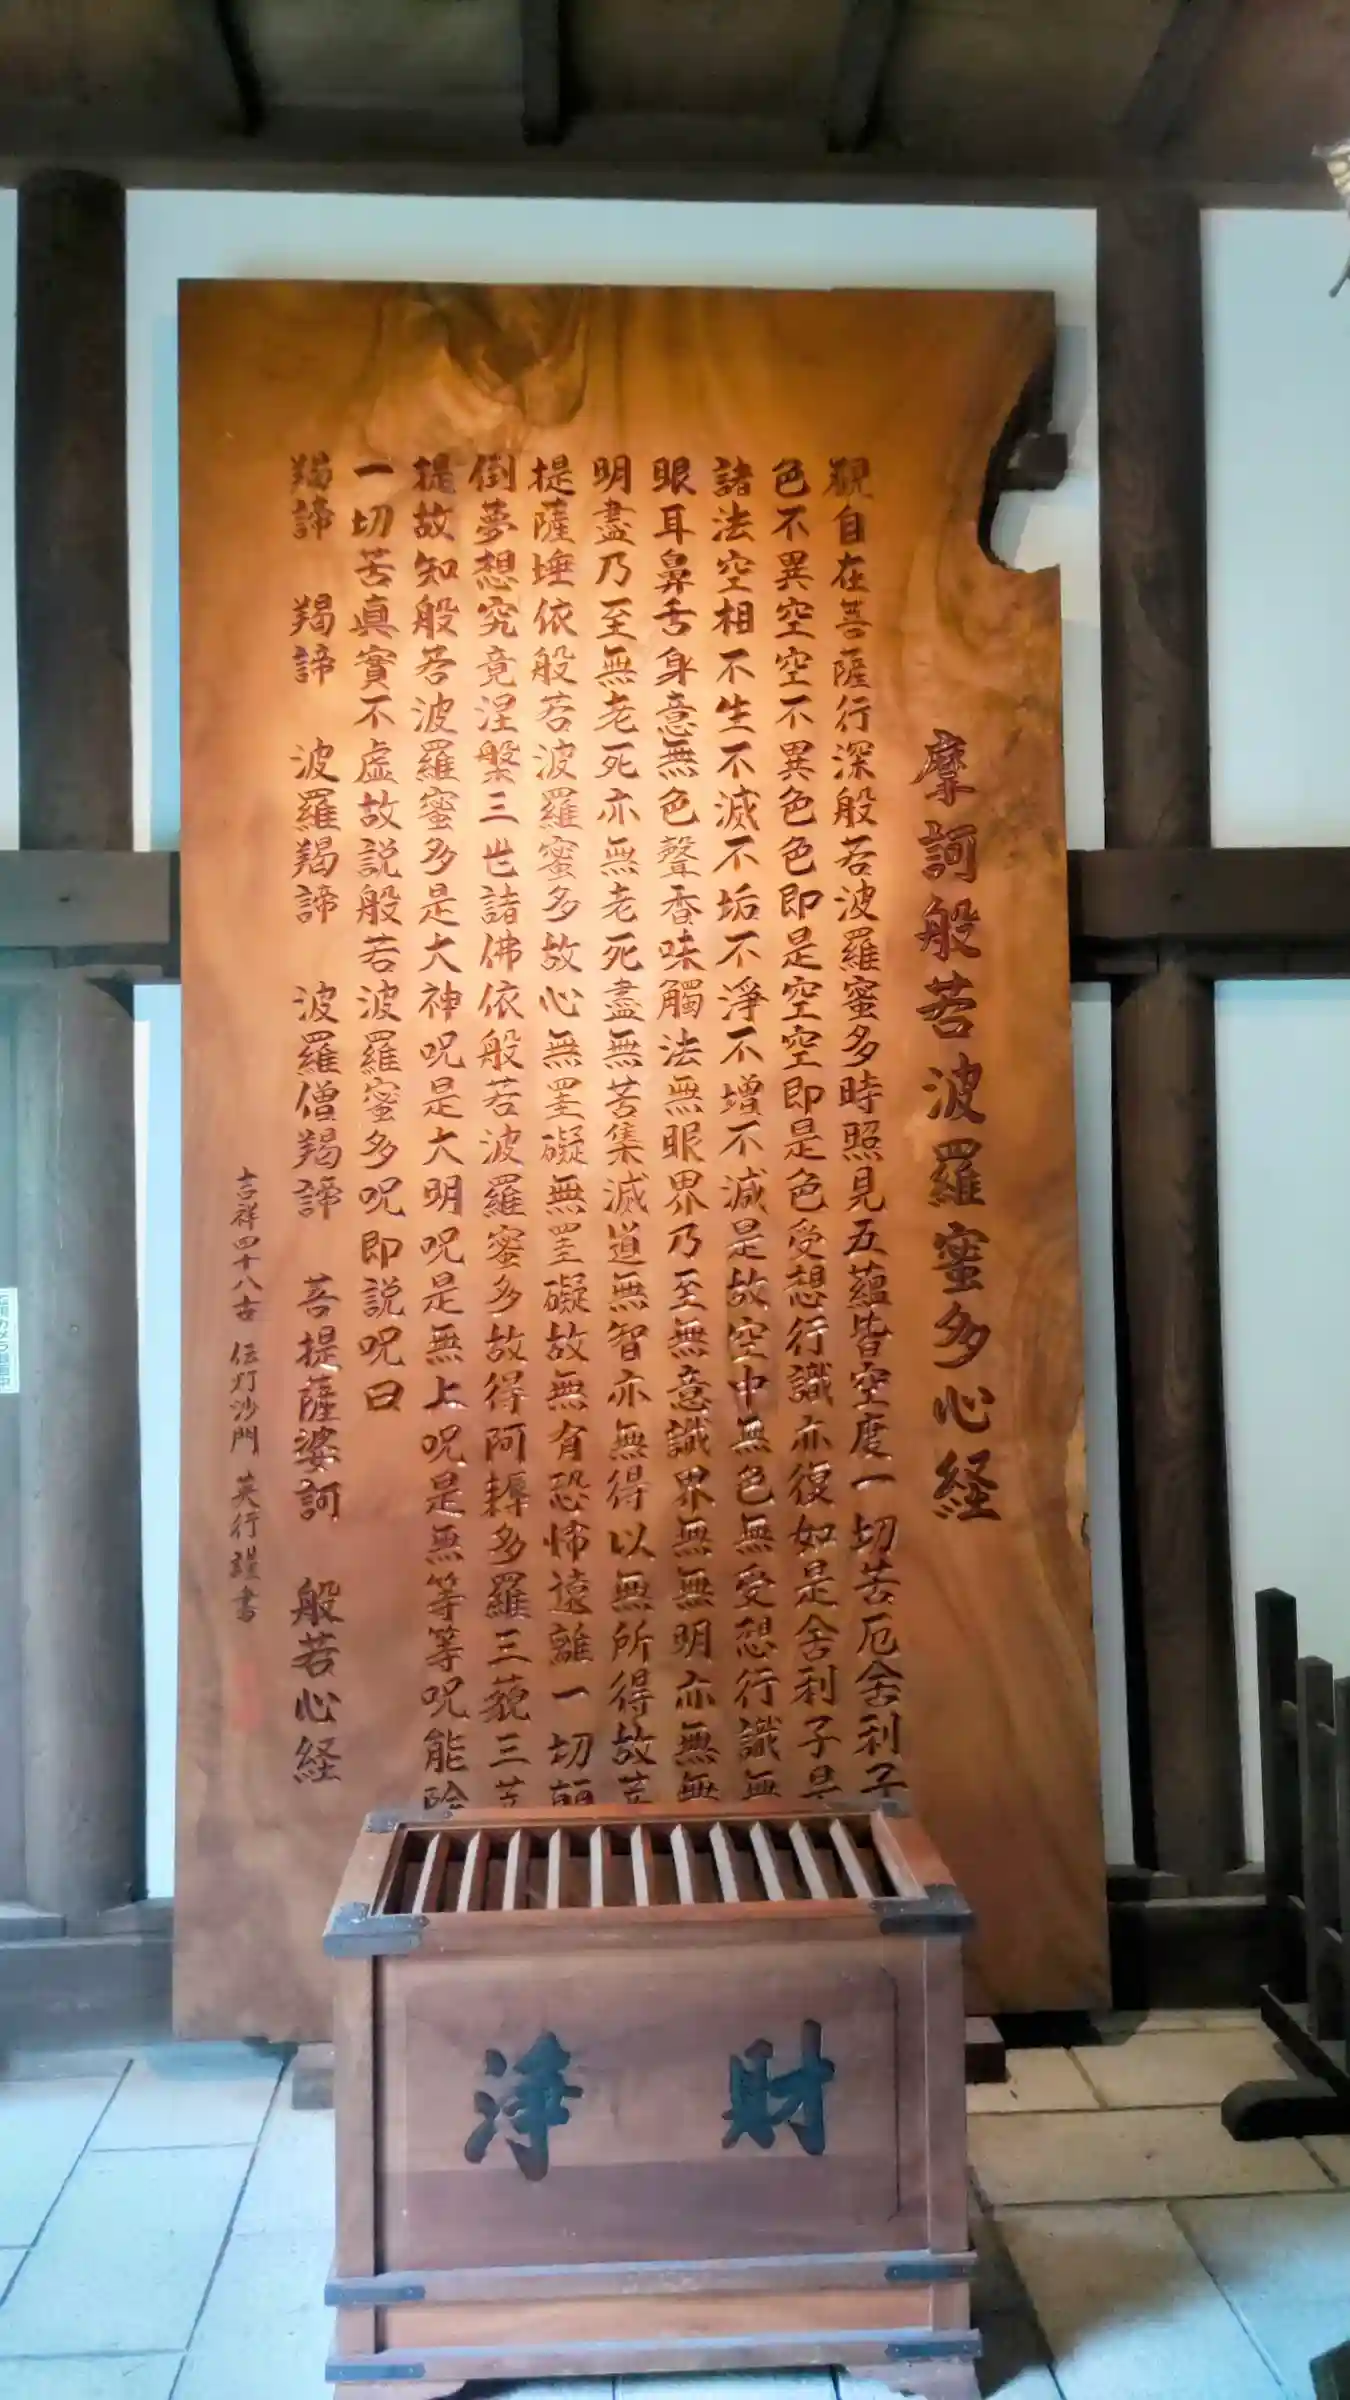 摩訶般若波羅蜜多心経
觀自在菩薩行深般若波羅蜜多時照見五蘊皆空度一切苦厄舍利子
色不異空空不異色色即是空空即是色受想行識亦復如是舍利子是
諸法空相不生不滅不垢不淨不增不減是故空中無色無受想行識無
眼耳鼻舌身意無色聲香味觸法無眼界乃至無意識界無無明亦無無
明盡乃至無老死亦無老死盡無苦集滅道無智亦無得以無所得故菩
提薩埵依般若波羅蜜多故心無罣礙無罣礙故無有恐怖遠離一切顛
倒夢想究竟涅槃三世諸佛依般若波羅蜜多故得阿耨多羅三藐三菩
提故知般若波羅蜜多是大神呪是大明呪是無上呪是無等等呪能除
一切苦真實不虛故説般若波羅蜜多呪即説呪曰
羯諦 羯諦 波羅羯諦 波羅僧羯諦 菩提薩婆訶 般若心経
吉祥四十八古 伝灯沙門 英行謹書
浄財